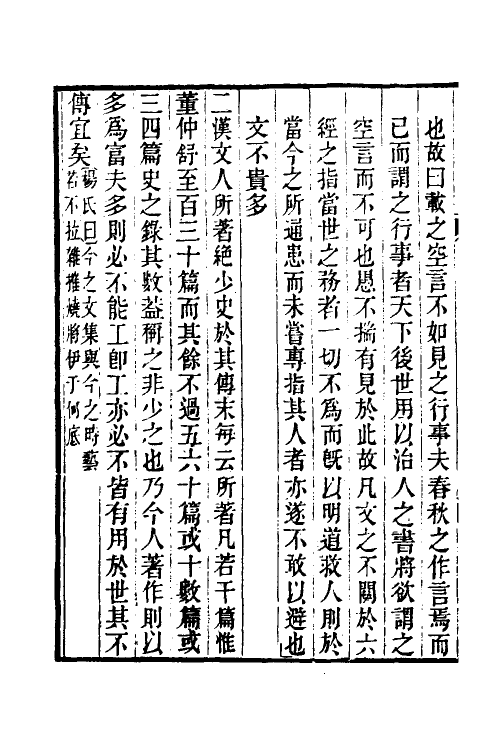 也故曰載之空言不如見之行事夫春秋之作言焉而
已而謂之行事者天下後世用以治人之書將欲謂之
空言而不可也愚不揣有見於此故凡文之不關於六
經之指當世之務者一切不為而旣以明道救人則於
當今之所通患而未嘗專指其人者亦遂不敢以避也
文不貴多
二漢文人所著絶少史於其傳末每云所著凡若干篇惟
董仲舒至百三十篇而其餘不過五六十篇或十數篇或
三四篇史之錄其數蓋稱之非少之也乃今人著作則以
多爲富夫多則必不能工卽工亦必不皆有用於世其不
傳宜矣楊氏曰今之文集與今之時藝
若不拉雜摧燒將伊于何底